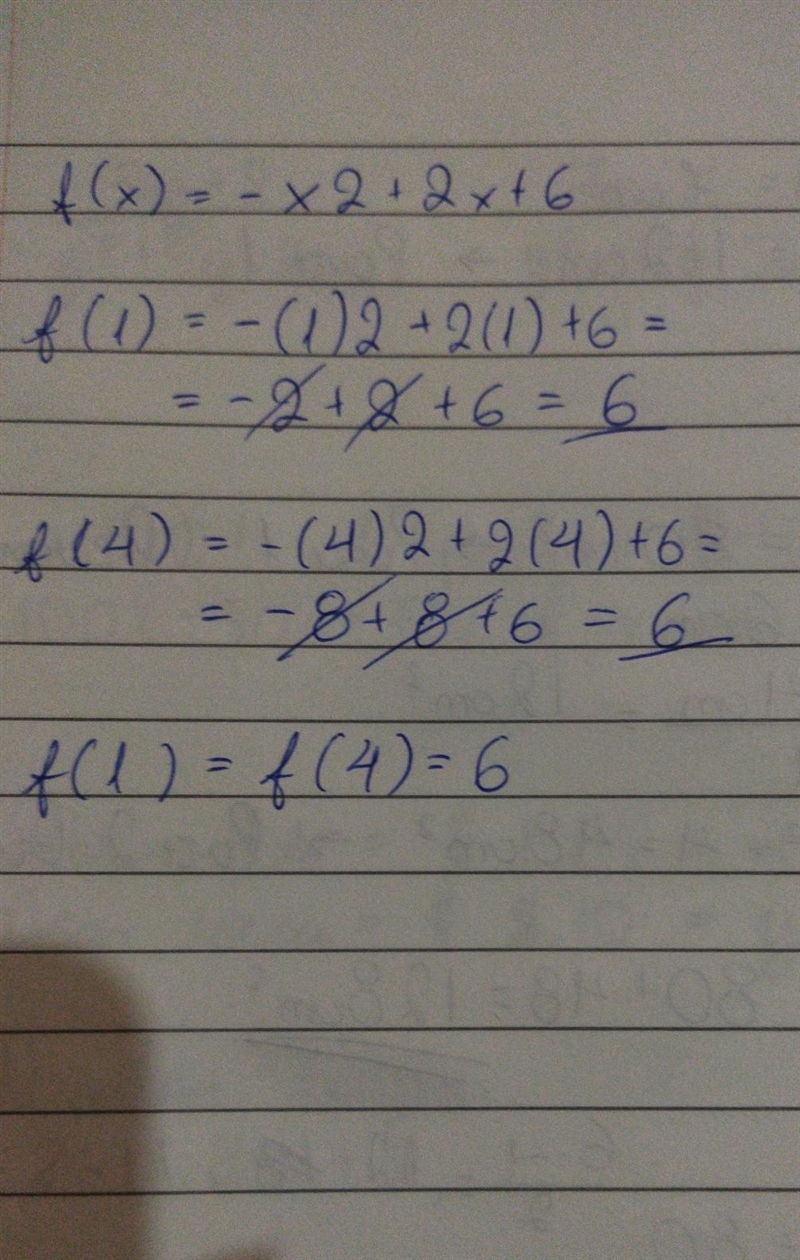 f(x) = - x2 + 2x + 6
f(1) = -(1)2 + 2(1) + 6 =
= -2 + 2 + 6 = 6
f(4) = -(4)2 + 2(4) + 6 =
= -8 + 8 + 6 = 6
f(1) = f(4) = 6